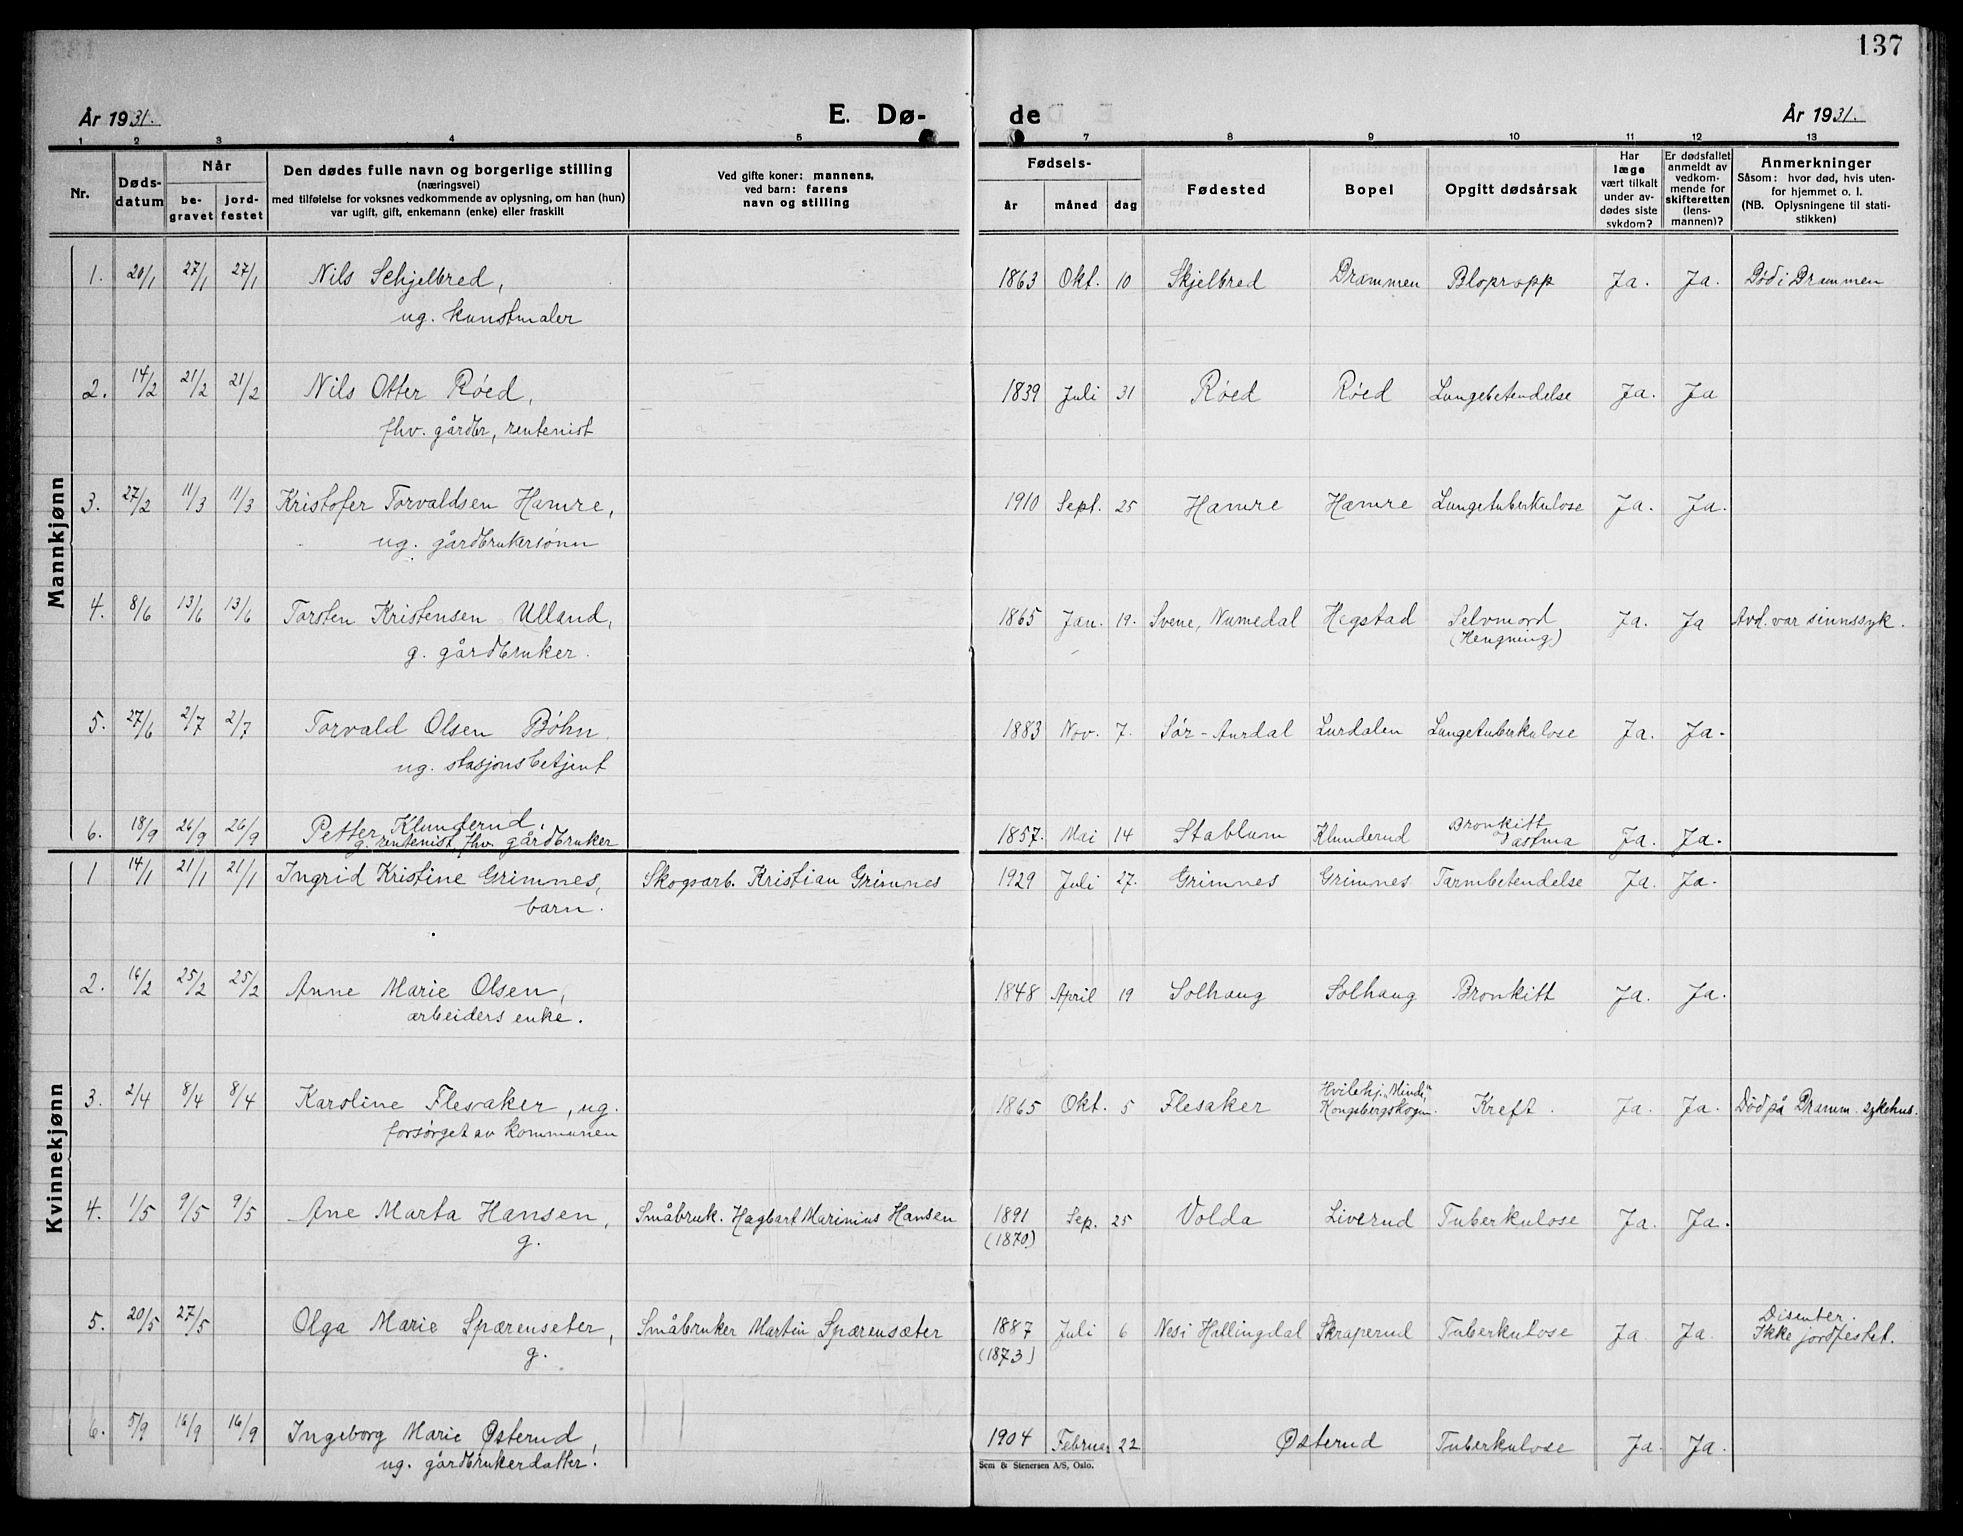 137
År 1931. E. Dø- de År 1931.
1 2 3 4 5 7 8 9 10 11 12 13
Nr. Døds-datum Når begravet jordfestet Den dødes fulle navn og borgerlige stilling (næringsvei) med tilføielse for voksnes vedkommende av oplysning, om han (hun) var ugift, gift, enkemann (enke) eller fraskilt Ved gifte koner: mannens, ved barn: farens navn og stilling Fødsels- år måned dag Fødested Bopel Opgitt dødsårsak Har læge vært tilkalt under avdødes siste sykdom? Er dødsfallet anmeldt av vedkommende for skifteretten (lensmannen)? Anmerkninger Såsom: hvor død, hvis utenfor hjemmet o. l. (NB. Oplysningene til statistikken)
Mannkjønn
1. 20/1 27/1 27/1 Nils Schjelbred, 1863 Okt. 10 Skjelbred Drammen Blopropp Ja. Ja. Død i Drammen
ug. kunstmaler
2. 14/2 21/2 21/2 Nils Otter Røed, 1839 Juli 31 Røed Røed Lungebetendelse Ja. Ja
fhv. gårdbr, rentenist
3. 27/2 11/3 11/3 Kristofer Torvaldsen Hamre, 1910 Sept. 25 Hamre Hamre Lungetuberkulose Ja. Ja.
ug. gårdbrukersønn
4. 8/6 13/6 13/6 Torsten Kristensen Ulland, 1865 Jan. 19. Svene, Numedal Hegstad Selvmord Ja. Ja Avd. var sinnssyk.
g. gårdbruker. (Hengning)
5. 27/6 2/7 2/7 Torvald Olsen Bøhn. 1883 Nov. 7. Sør-Aurdal Lurdalen Lungetuberkulose Ja. Ja.
ug. stasjonsbetjent
6. 18/9 26/9 26/9 Petter Klunderud, 1857. Mai 14 Stablum Klunderud Bronkitt Ja. Ja.
g. rentenist fhv. gårdbruker astma
Kvinnekjønn
1 14/1 21/1 21/1 Ingrid Kristine Grimnes, Skogsarb. Kristian Grimnes 1929 Juli 27. Grimnes Grimnes Tarmbetendelse Ja. Ja.
barn.
2. 16/2 25/2 25/2 Anne Marie Olsen, 1848 April 19 Solhaug Solhaug Bronkitt Ja. Ja.
arbeiders enke.
3. 2/4 8/4 8/4 Karoline Flesaker, ug. 1865 Okt. 5 Flesaker Hvilehj. "Minde", Kongsbergskogen. Kreft. Ja. Ja. Død på Dramm. sykehus.
forsørget av kommunen
4. 1/5 9/5 9/5 Ane Marta Hansen, Småbruk. Hagbart Marinius Hansen 1891 Sep. 25 Volda Liverud Tuberkulose Ja. Ja.
g. (1870)
5. 20/5 27/5 Olga Marie Spærenseter, Småbruker Martin Spærensæter 1887 Juli 6 Nes i Hallingdal Skraperud Tuberkulose Ja Ja. Disenter.
g. (1873) Ikke jordfestet.
6. 5/9 16/9 16/9 Ingeborg Marie Østerud, 1904 Februar 22 Østerud Tuberkulose Ja. Ja.
ug. gårdbrukerdatter.
Sem & Stenersen A/S, Oslo.